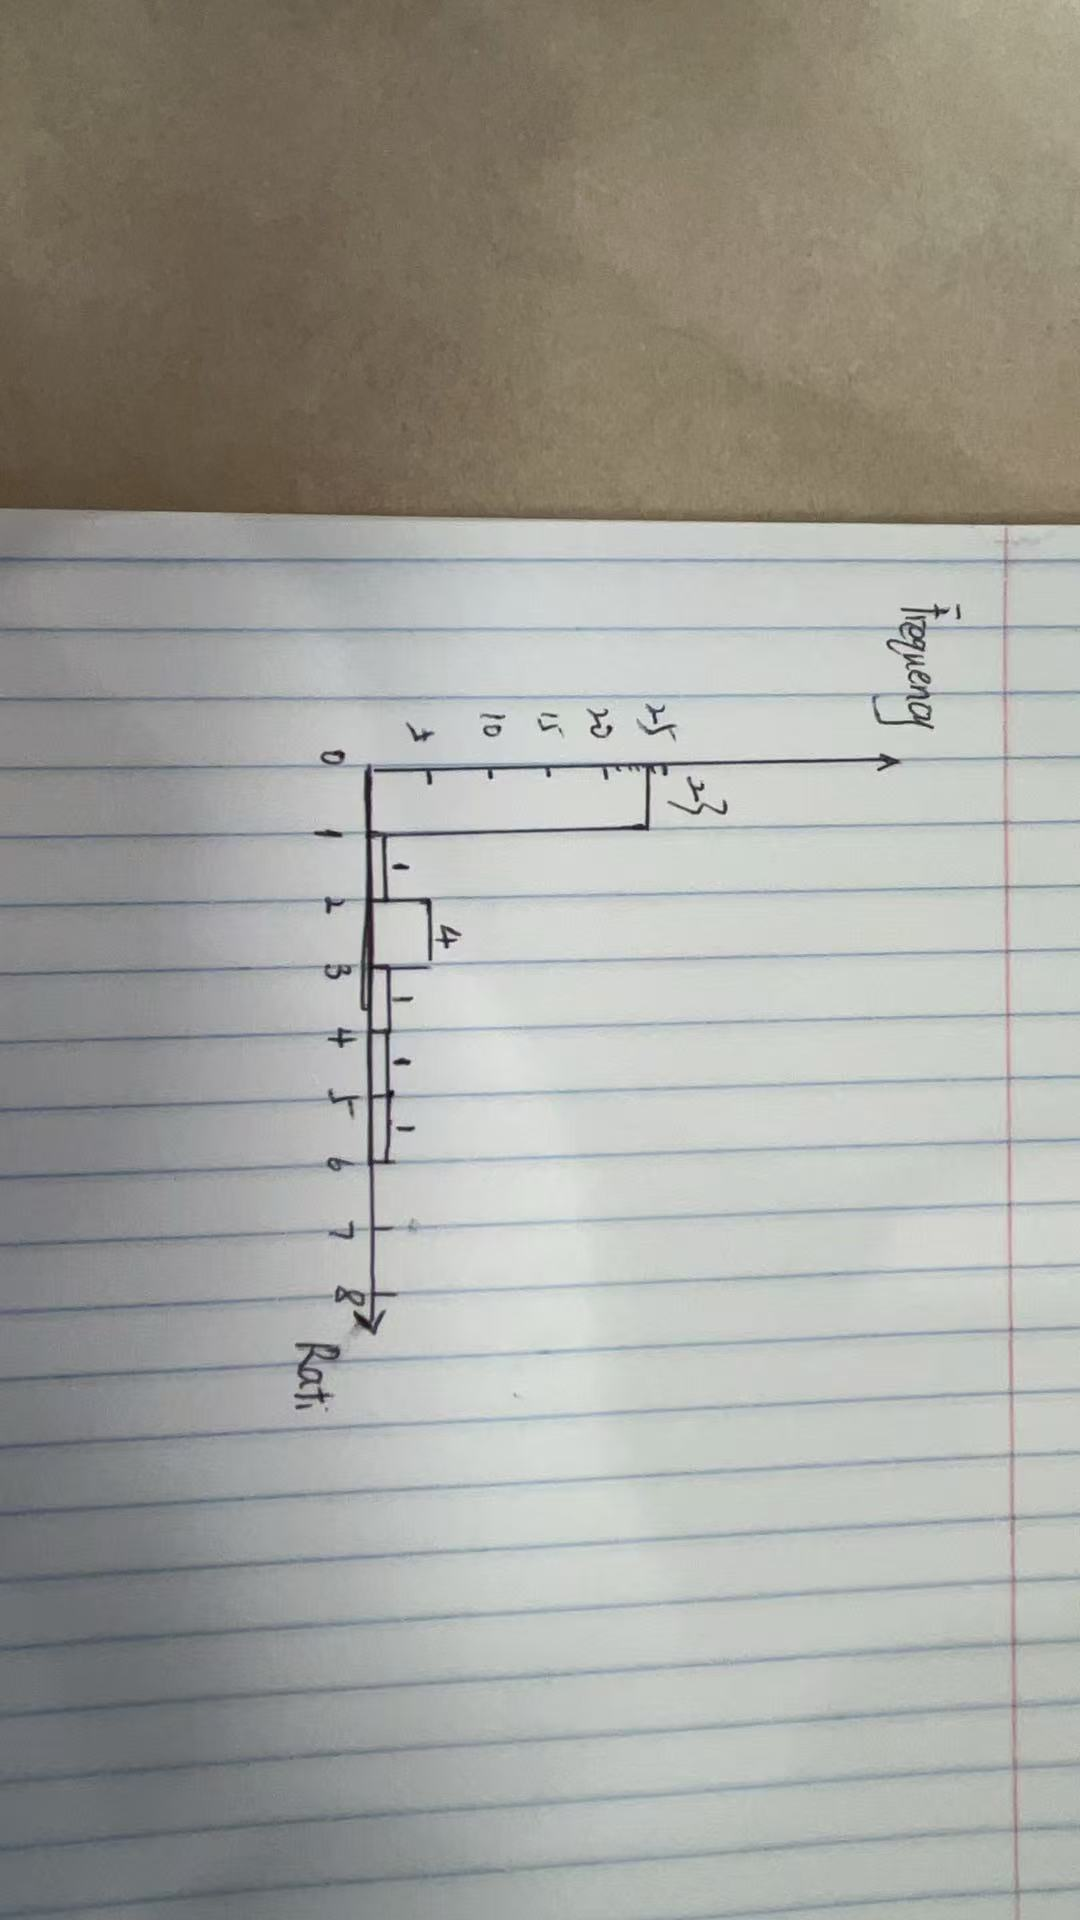 Frequency
25
20
15
10
5
23
1
4
1
1
1
0 1 2 3 4 5 6 7 8
Rati